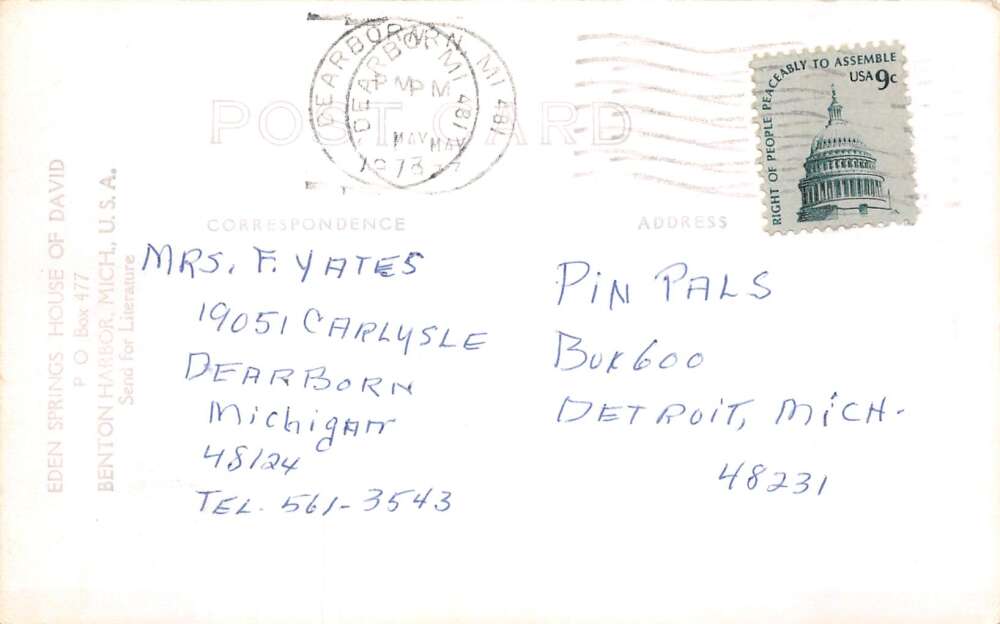 DEARBORN, MI 481
PM
MAY
1978
DEARBORN, MI 481
PM
MAY
RIGHT OF PEOPLE PEACEABLY TO ASSEMBLE
USA 9c
POST CARD
CORRESPONDENCE
ADDRESS
EDEN SPRINGS HOUSE OF DAVID
P O Box 477
BENTON HARBOR, MICH., U. S. A.
Send for Literature
MRS. F. YATES
19051 CARLYSLE
DEARBORN
Michigan
48124
TEL. 561-3543
PIN PALS
Box 600
DETROIT, MICH.
48231